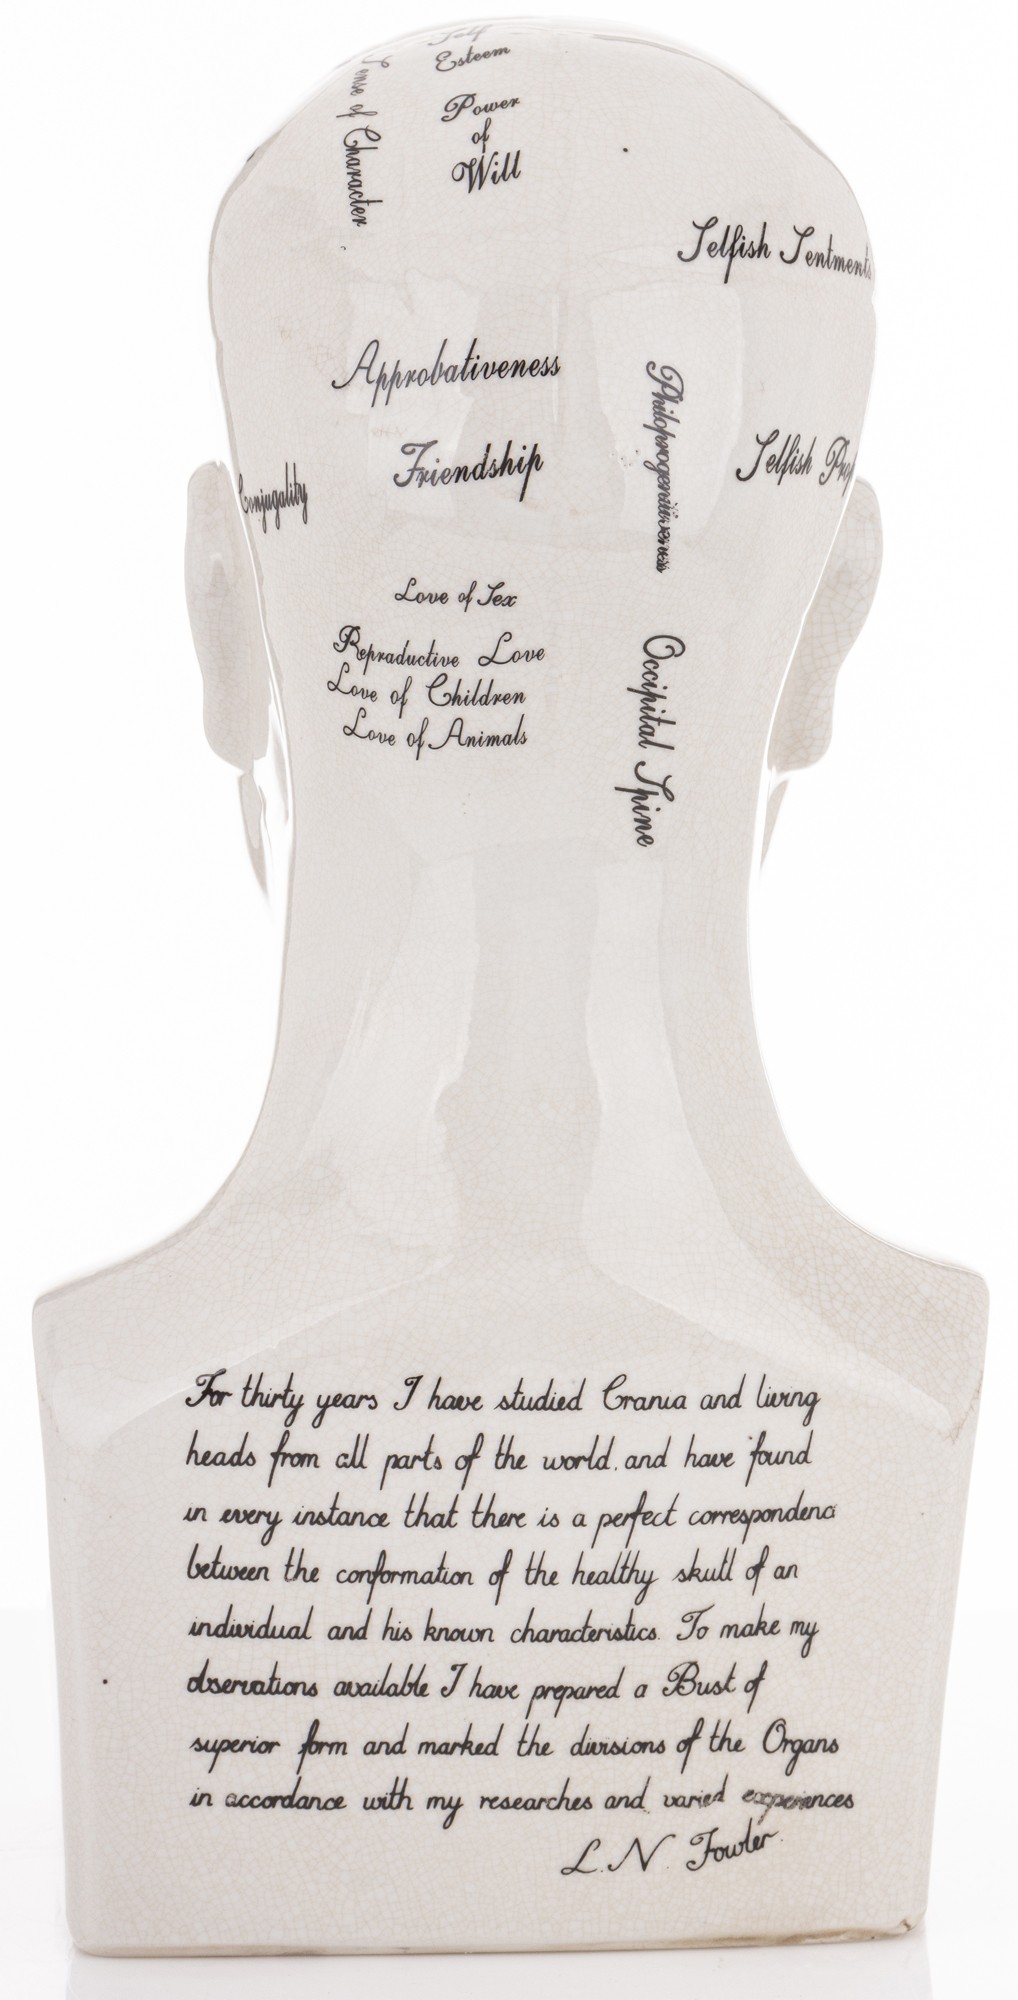 Self
Esteem
Sense of Character
Power
of
Will
Selfish Sentments
Approbativeness
Philoprogenitiveness
Friendship
Selfish
Conjugality
Love of Sex
Repraductive Love
Love of Children
Love of Animals
Occipital Spine
For thirty years I have studied Crania and living
heads from all parts of the world. and have found
in every instance that there is a perfect correspondenc
between the conformation of the healthy skull of an
individual and his known characteristics. To make my
observations available I have prepared a Bust of
superior form and marked the divisions of the Organs
in accordance with my researches and varied experiences
L. N. Fowler.